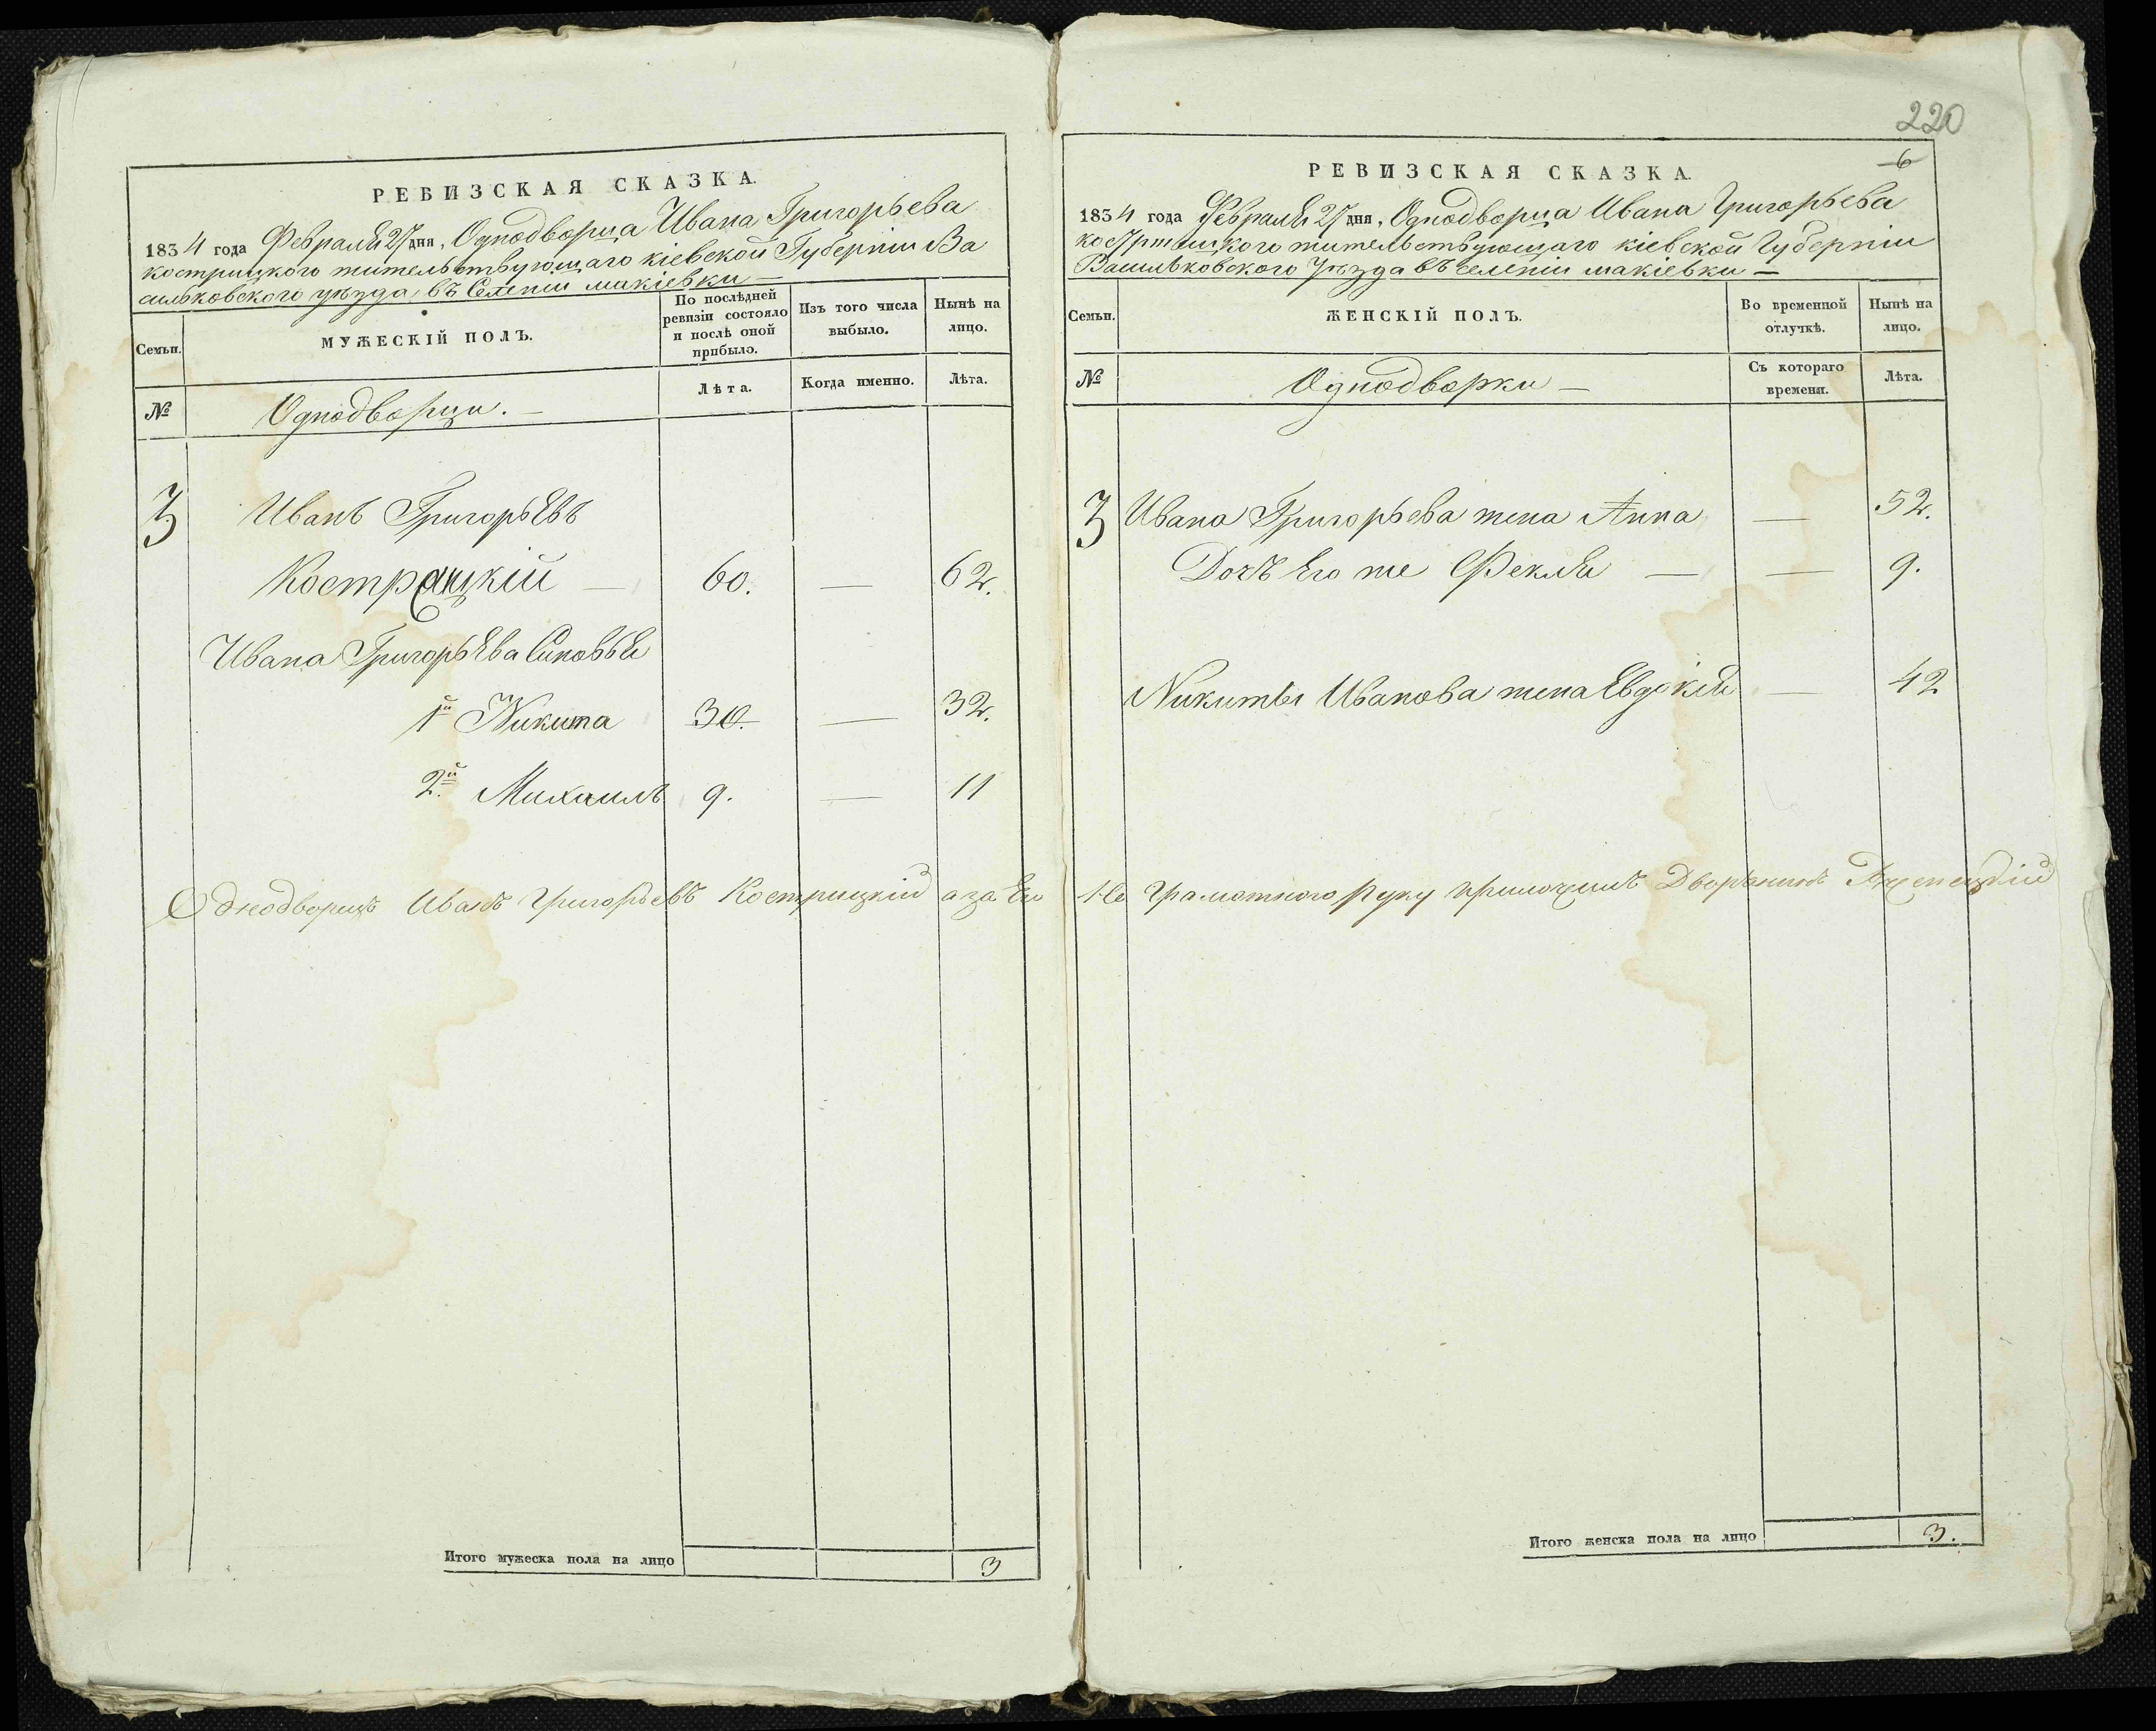 220
6
РЕВИЗСКАЯ СКАЗКА.
1834 года Февраля 27 дня, Однодворца Ивана Григорьева
кострицкого жительствующаго кіевской Губерніи Ва
сильковского уѣзда, въ Селеніи макіевки —
Семьи.
МУЖЕСКІЙ ПОЛЪ.
По послѣдней ревизіи состояло и послѣ оной прибыло.
Изъ того числа выбыло.
Нынѣ на лицо.
№
Однодворци. —
Лѣта.
Когда именно.
Лѣта.
3 Иванъ Григорьевъ
Кострицкій — 60. — 62.
Ивана Григорьева Синовья
1й Никита 30. — 32.
2.й Михаилъ 9. — 11
Итого мужеска пола на лицо 3
РЕВИЗСКАЯ СКАЗКА.
1834 года Февраля 27 дня, Однодворца Ивана Григорьева
костришцкого жительствующаго кіевской Губерніи
Васильковского Уѣзда въ селеніи макіевки —
Семьи.
ЖЕНСКІЙ ПОЛЪ.
Во временной отлучкѣ.
Нынѣ на лицо.
№
Однодворки —
Съ котораго времени.
Лѣта.
3 Ивана Григорьева жена Анна — 52.
Дочъ Его же Фекля — — 9.
Никиты Иванова жена Евдокія — 42
Однодворецъ Иванъ Григорьевъ Кострицкій а за Его Не Грамотного Руку приложилъ Дворянинъ
Итого женска пола на лицо 3.